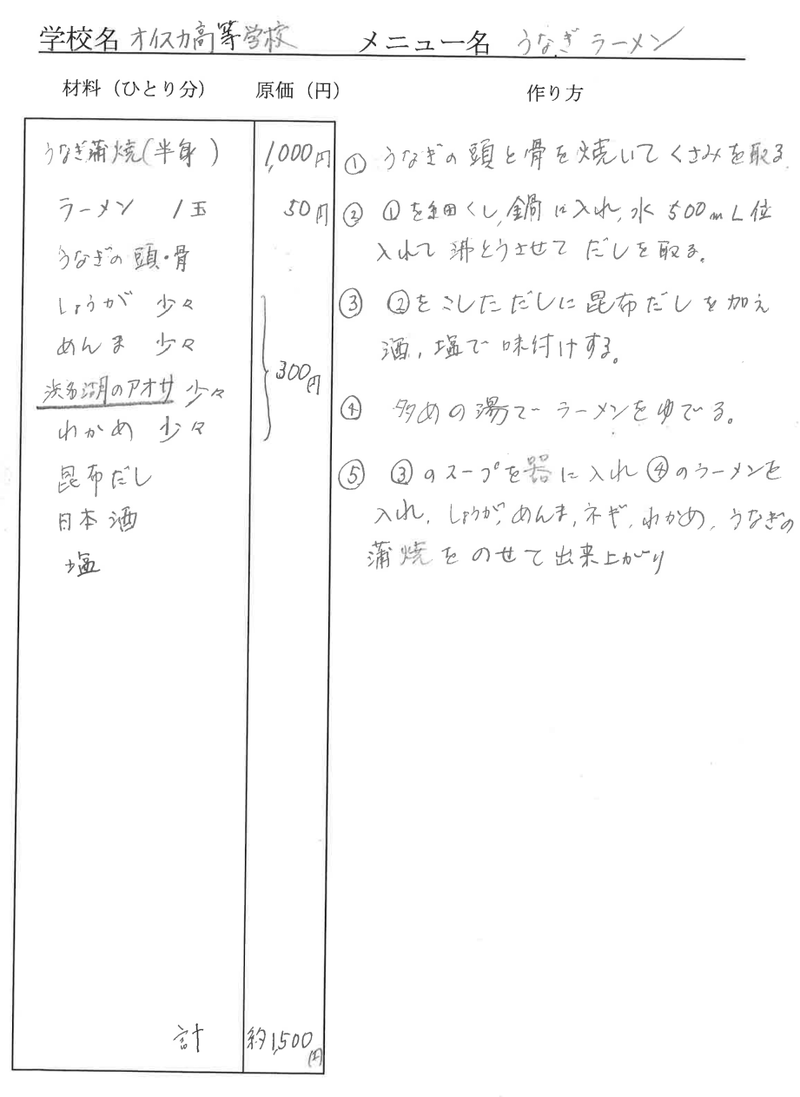 学校名 オイスカ高等学校 メニュー名 うなぎラーメン
材料（ひとり分） 原価（円） 作り方
うなぎ蒲焼(半身) 1,000円
ラーメン 1玉 50円
うなぎの頭・骨
しょうが 少々
めんま 少々
浜名湖のアオサ 少々
わかめ 少々
300円
昆布だし
日本酒
塩
計 約1,500円
① うなぎの頭と骨を焼いてくさみを取る
② ①を細くし,鍋に入れ,水500mL位
入れて沸とうさせてだしを取る。
③ ②をこしただしに昆布だしを加え
酒,塩で味付けする。
④ 多めの湯でラーメンをゆでる。
⑤ ③のスープを器に入れ④のラーメンを
入れ,しょうが,めんま,ネギ,わかめ,うなぎの
蒲焼をのせて出来上がり